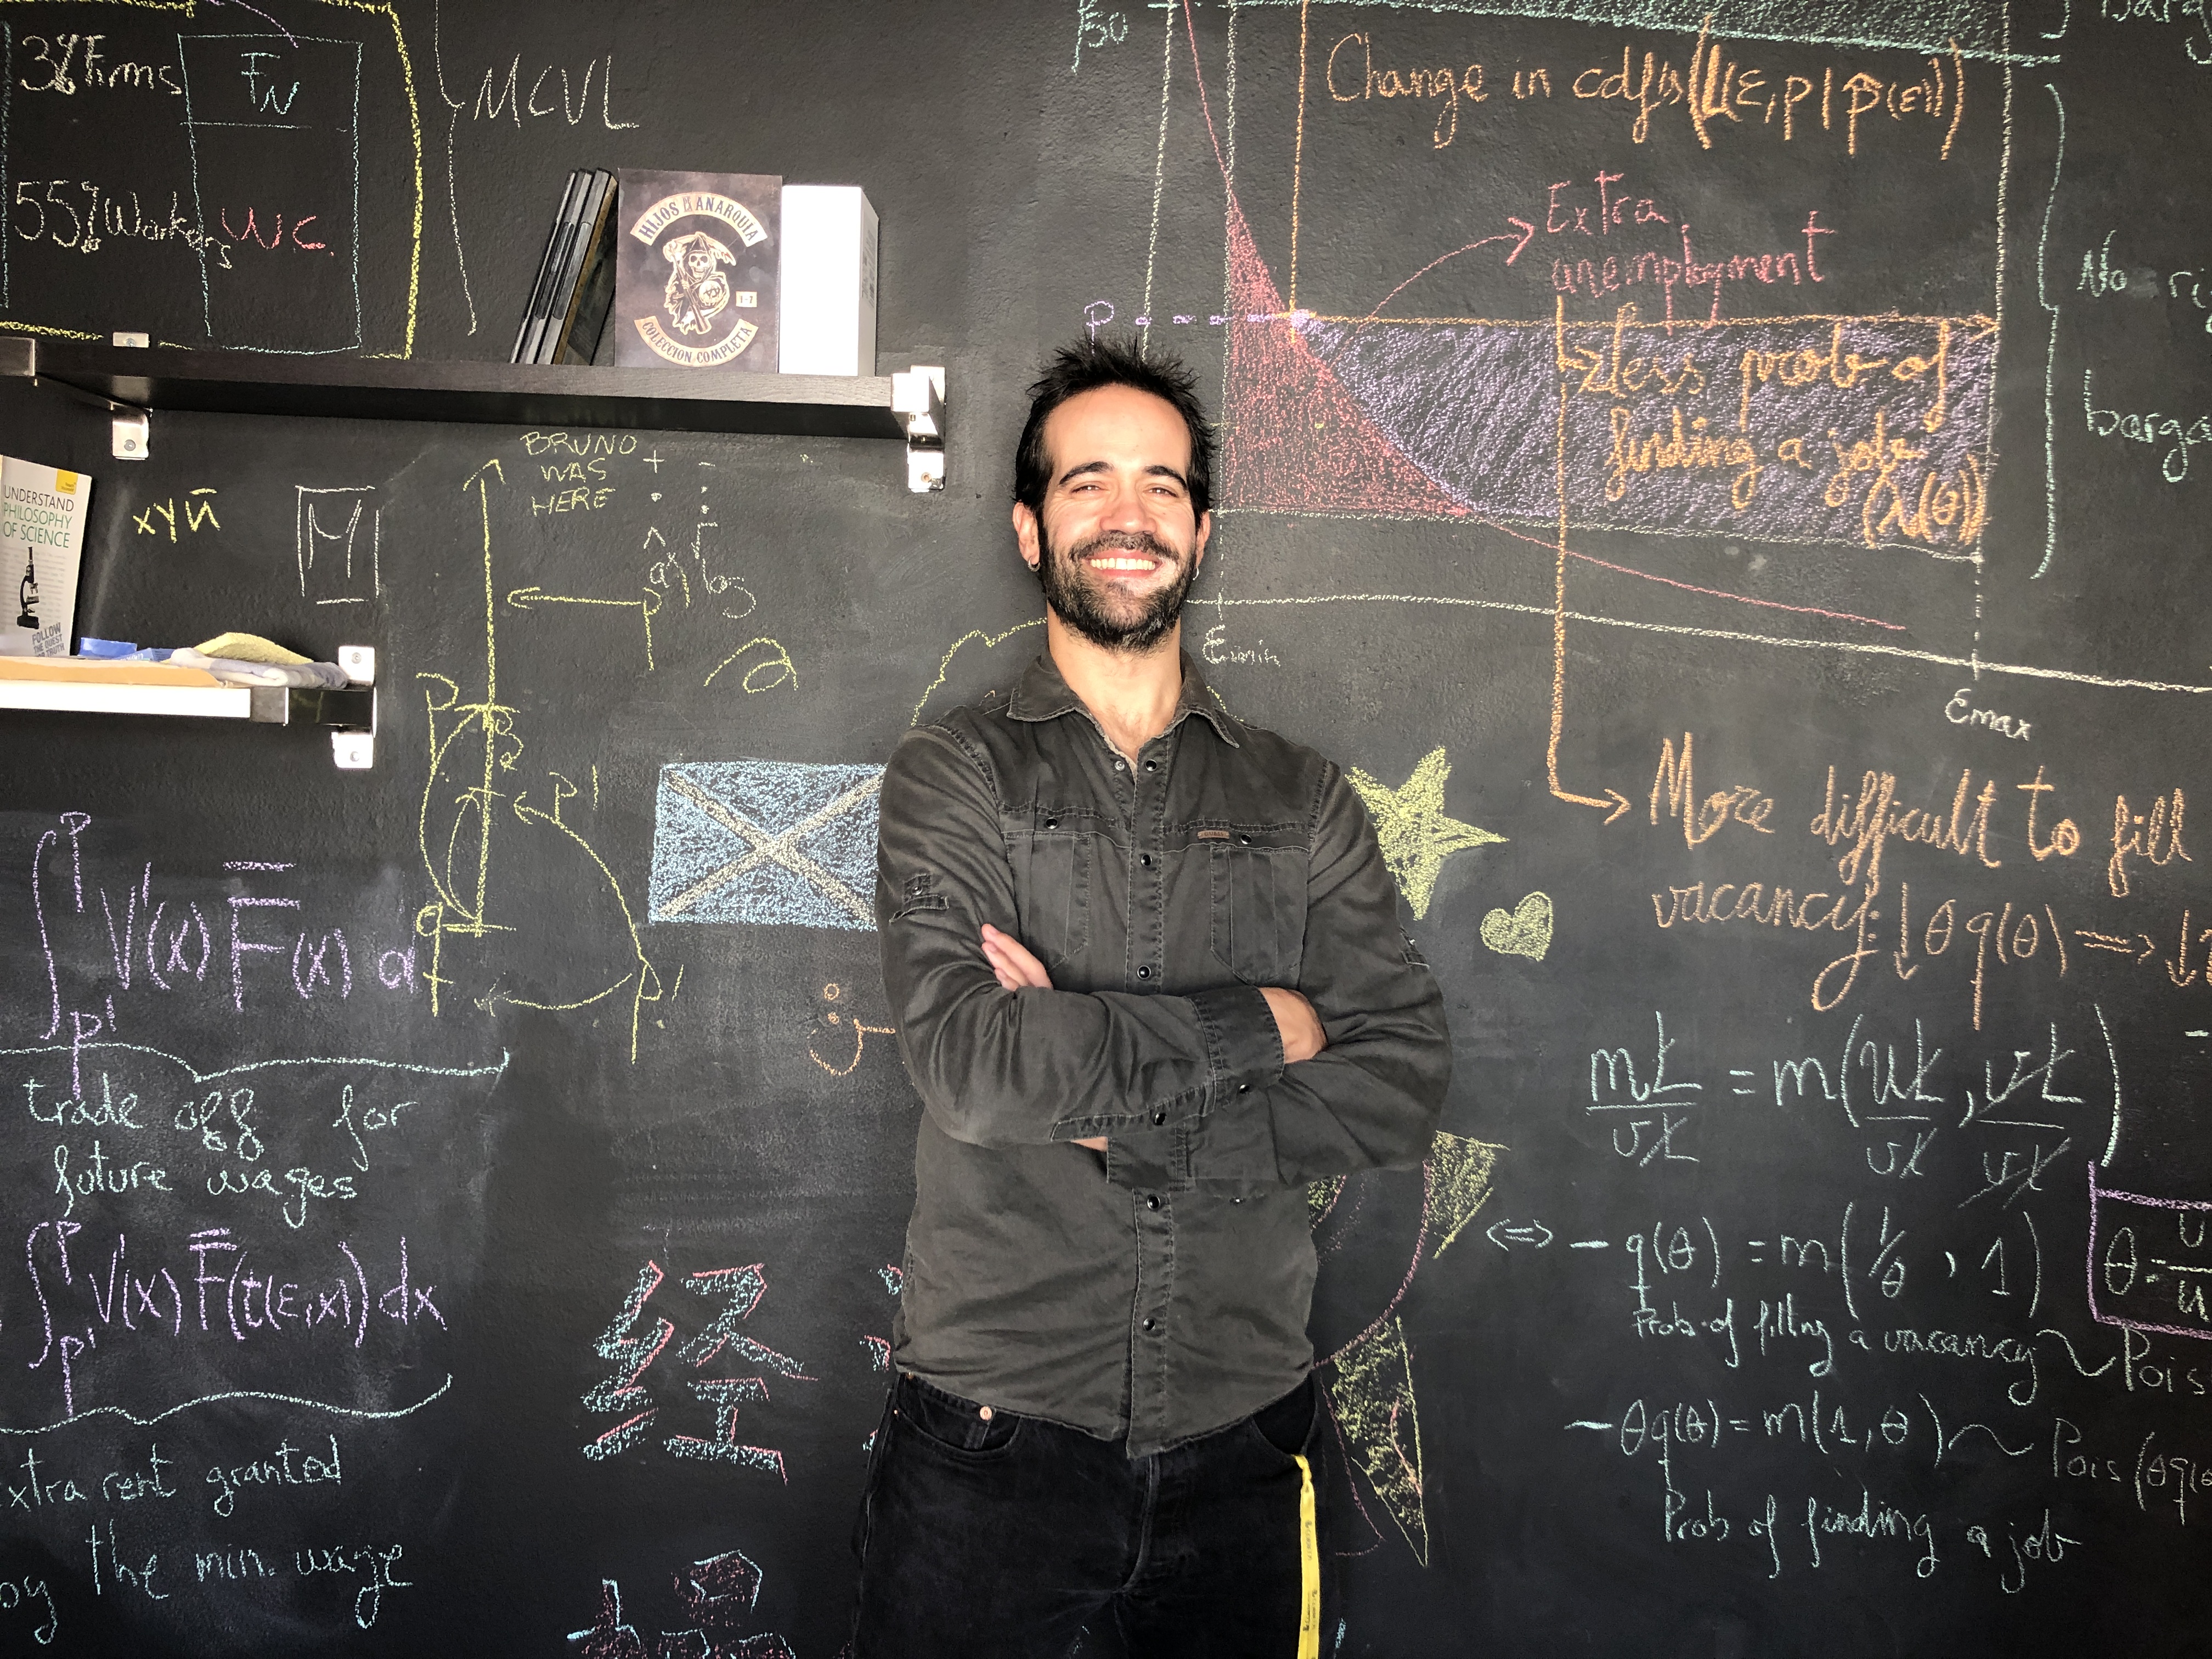 38% Firms
FN
55% Workers
WC.
MCVL
HIJOS DE LA ANARQUIA
1-7
COLECCION COMPLETA
UNDERSTAND
PHILOSOPHY
OF SCIENCE
FOLLOW
xyñ
M
BRUNO
WAS
HERE
+ -
P
P'
∫ V'(x) F̅(x) d
P
P'
trade off for
future wages
∫ V'(x) F̅(t(ε,x)) dx
P
P'
extra rent granted
by the min. wage
经
Change in cdf's (L(ε,p|p̂(ε)))
Extra
unemployment
P
less prob of
finding a job
(λ(θ))
εmin
εmax
No
More difficult to fill
vacancy: ↓θq(θ) => ↓
mL/vL = m(uL/vL, vL/vL)
<=> - q(θ) = m(1/θ, 1)
Prob. of filling a vacancy ~ Pois
θ = v/u
- θq(θ) = m(1, θ) ~ Pois(θq(θ
Prob of finding a job